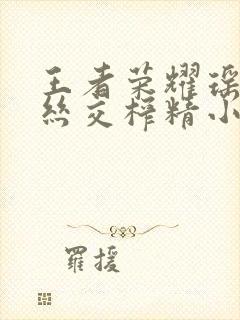 王者荣耀瑶
丝交榨精小
羅援